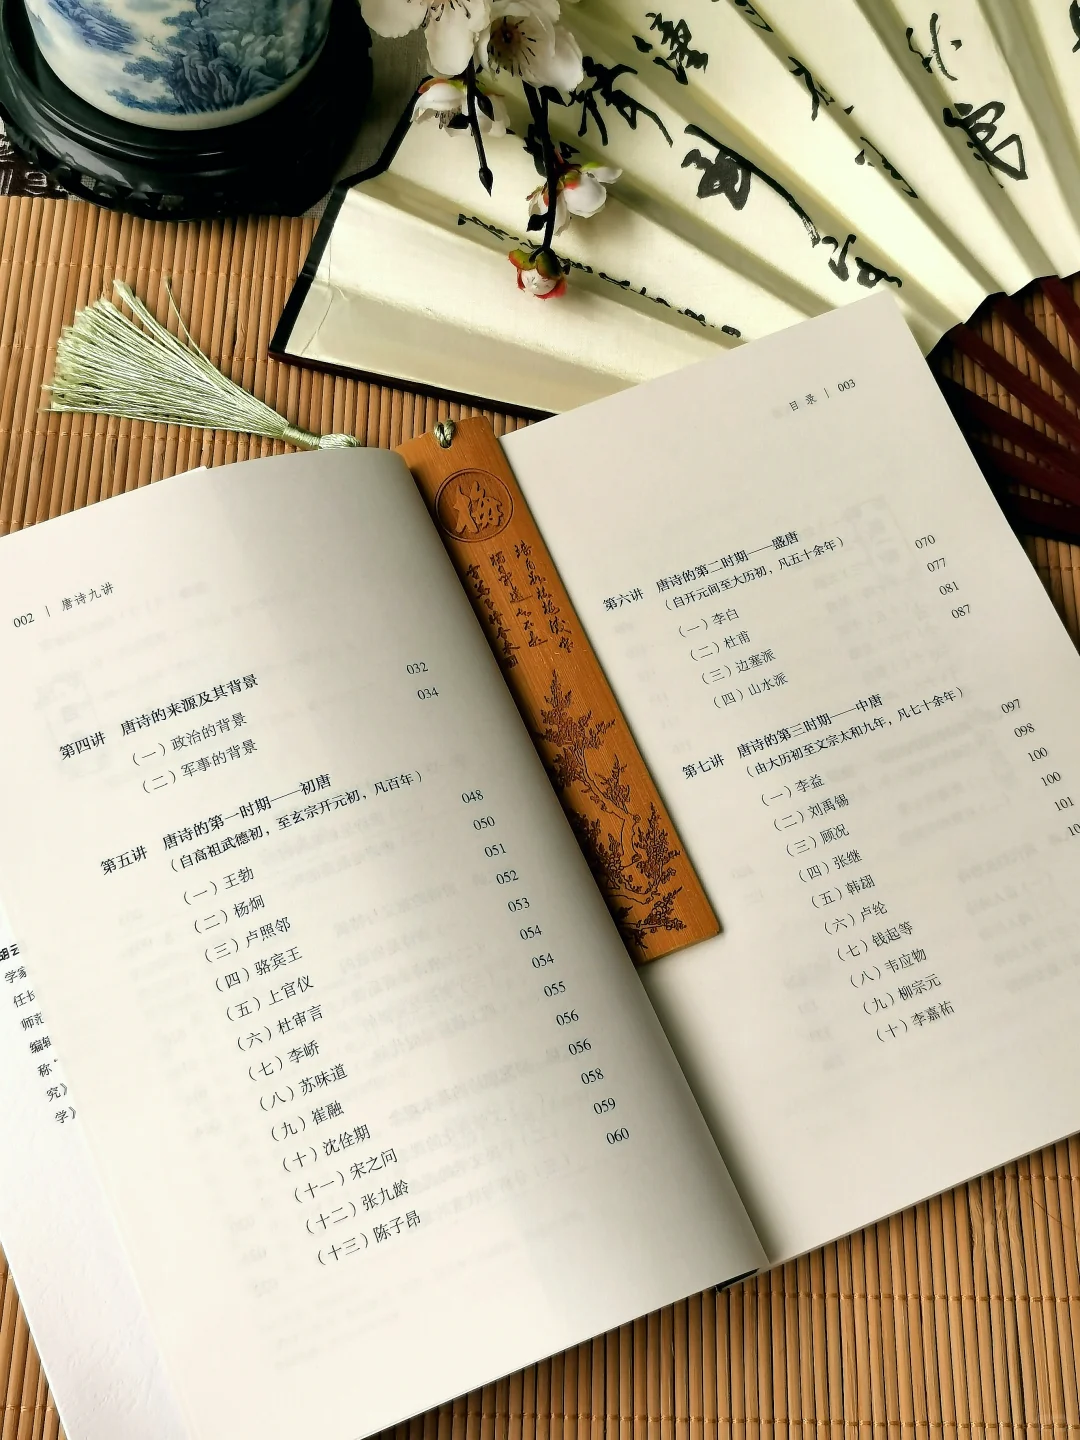 002 | 唐诗九讲
第四讲 唐诗的来源及其背景
（一）政治的背景 032
（二）军事的背景 034
第五讲 唐诗的第一时期——初唐
（自高祖武德初，至玄宗开元初，凡百年）
（一）王勃 048
（二）杨炯 050
（三）卢照邻 051
（四）骆宾王 052
（五）上官仪 053
（六）杜审言 054
（七）李峤 054
（八）苏味道 055
（九）崔融 056
（十）沈佺期 056
（十一）宋之问 058
（十二）张九龄 059
（十三）陈子昂 060
目录 | 003
第六讲 唐诗的第二时期——盛唐
（自开元间至大历初，凡五十余年）
（一）李白 070
（二）杜甫 077
（三）边塞派 081
（四）山水派 087
第七讲 唐诗的第三时期——中唐
（由大历初至文宗太和九年，凡七十余年）
（一）李益 097
（二）刘禹锡 098
（三）顾况 100
（四）张继 100
（五）韩翃 101
（六）卢纶
（七）钱起等
（八）韦应物
（九）柳宗元
（十）李嘉祐
梅
学家
任长
师范
编辑
称
究》
学》